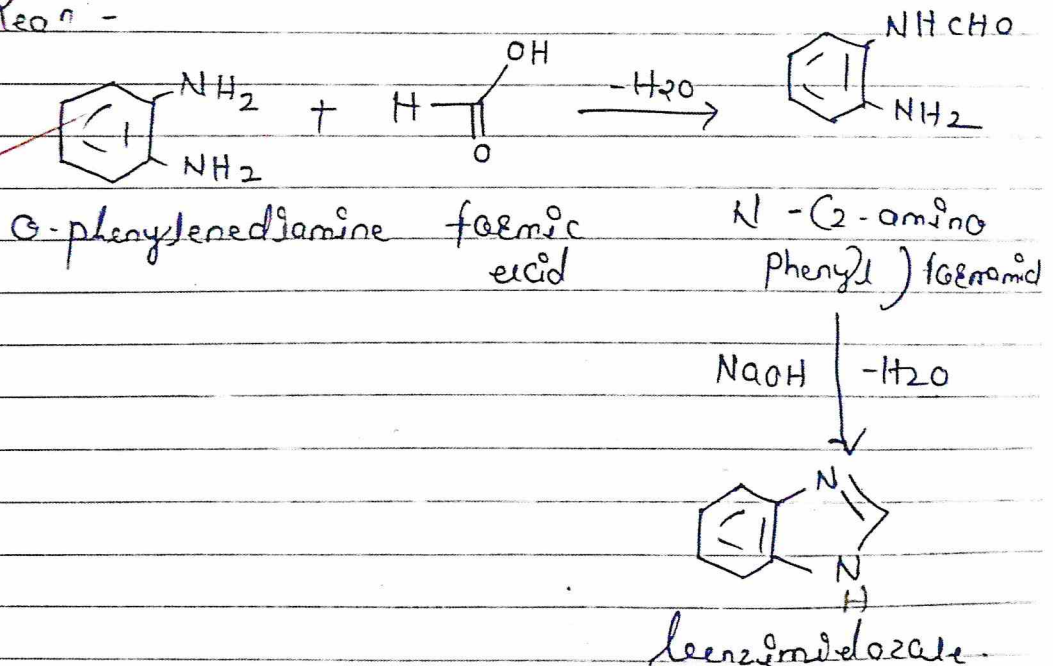 Reaⁿ -
NHCHO
OH
NH2 + H -H2O
NH2 O NH2
o-phenylenediamine formic N-(2-amino
acid Phenyl) formamid
NaOH -H2O
N
N
H
benzimidazole.